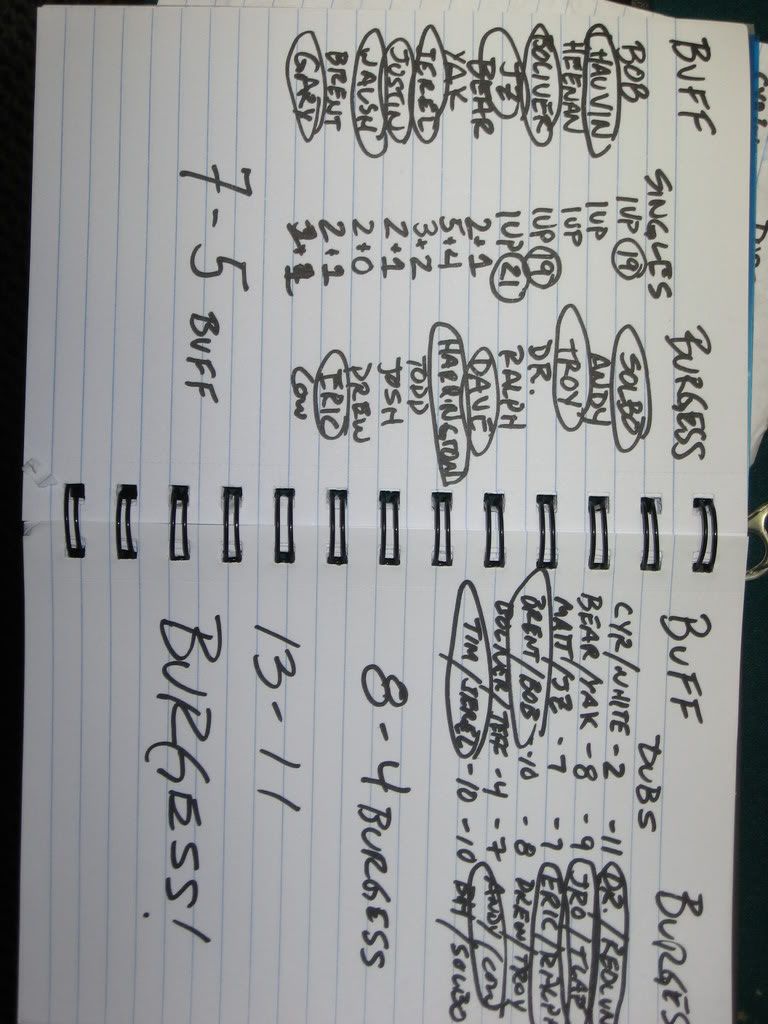 BUFF SINGLES BURGESS
BOB 1UP 19 SOLBO
HAUVIN 1UP ANDY
HEENAN 1UP TROY
BOLIVER 1UP 19 DR.
JZ 1UP 21 RALPH
BEAR 2+1 DAVE
YAK 5+4 HARRINGTON
JERED 3+2 TODD
JUSTIN 2+1 JOSH
WALSH 2+0 DREW
BRENT 2+1 ERIC
GARY COW
7-5 BUFF
BUFF DUBS BURGES
CYR/WHITE -2 -11 DR./REDLUN
BEAR/YAK -8 -9
MATT/JZ -7 ERIC/RALPH
BRENT/BOB -10 -8 DREW/TROY
DOLIVER/JEFF -4 -7 ANDY/COW
TIM/JERED -10 -10 /SOLBO
8-4 BURGESS
13-11
BURGESS!